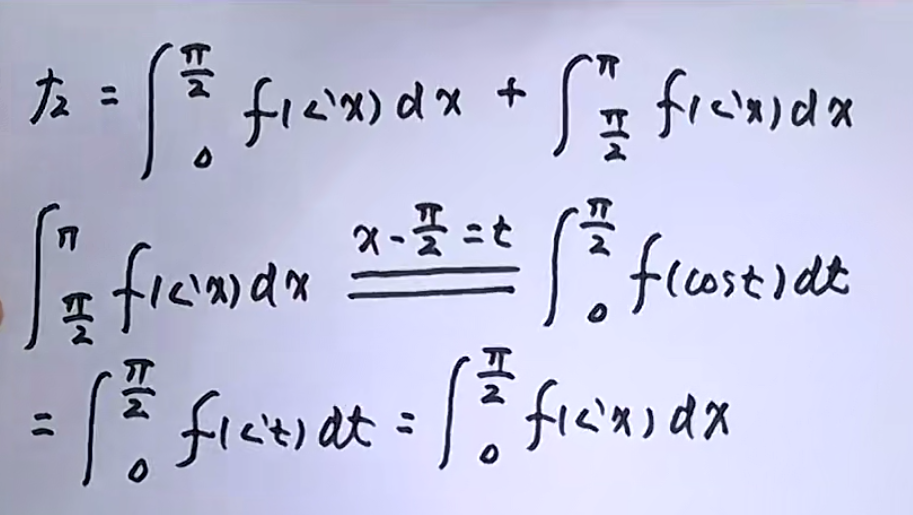 右 = ∫_0^{π/2} f(s'x)dx + ∫_{π/2}^{π} f(s'x)dx
∫_{π/2}^{π} f(s'x)dx \xlongequal{x-π/2=t} ∫_0^{π/2} f(cost)dt
= ∫_0^{π/2} f(s't)dt = ∫_0^{π/2} f(s'x)dx